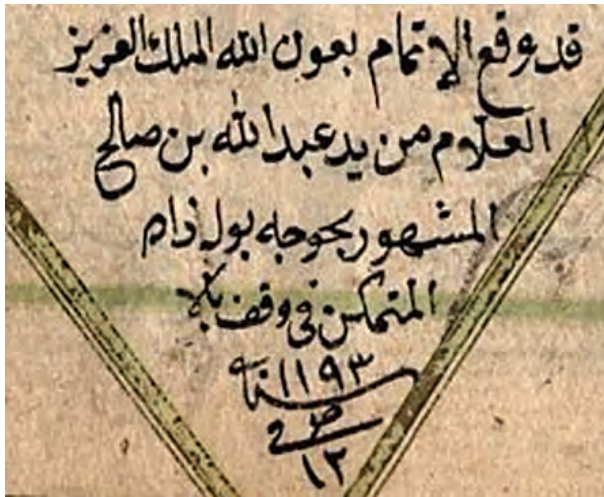 قد وقع الإتمام بعون الله الملك العزيز
العلام من يد عبد الله بن صالح
المشهور بخوجه بولذام
المتمكن في وقف
سنة ١١٩٣
١٢